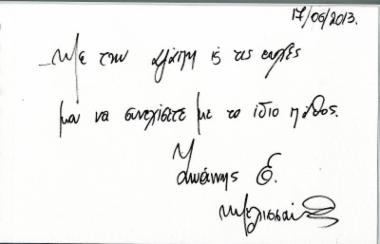 17/06/2013.
Με την αγάπη & τις ευχές
μου να συνεχίσετε με το ίδιο πάθος.
Ιωάννης Ε.